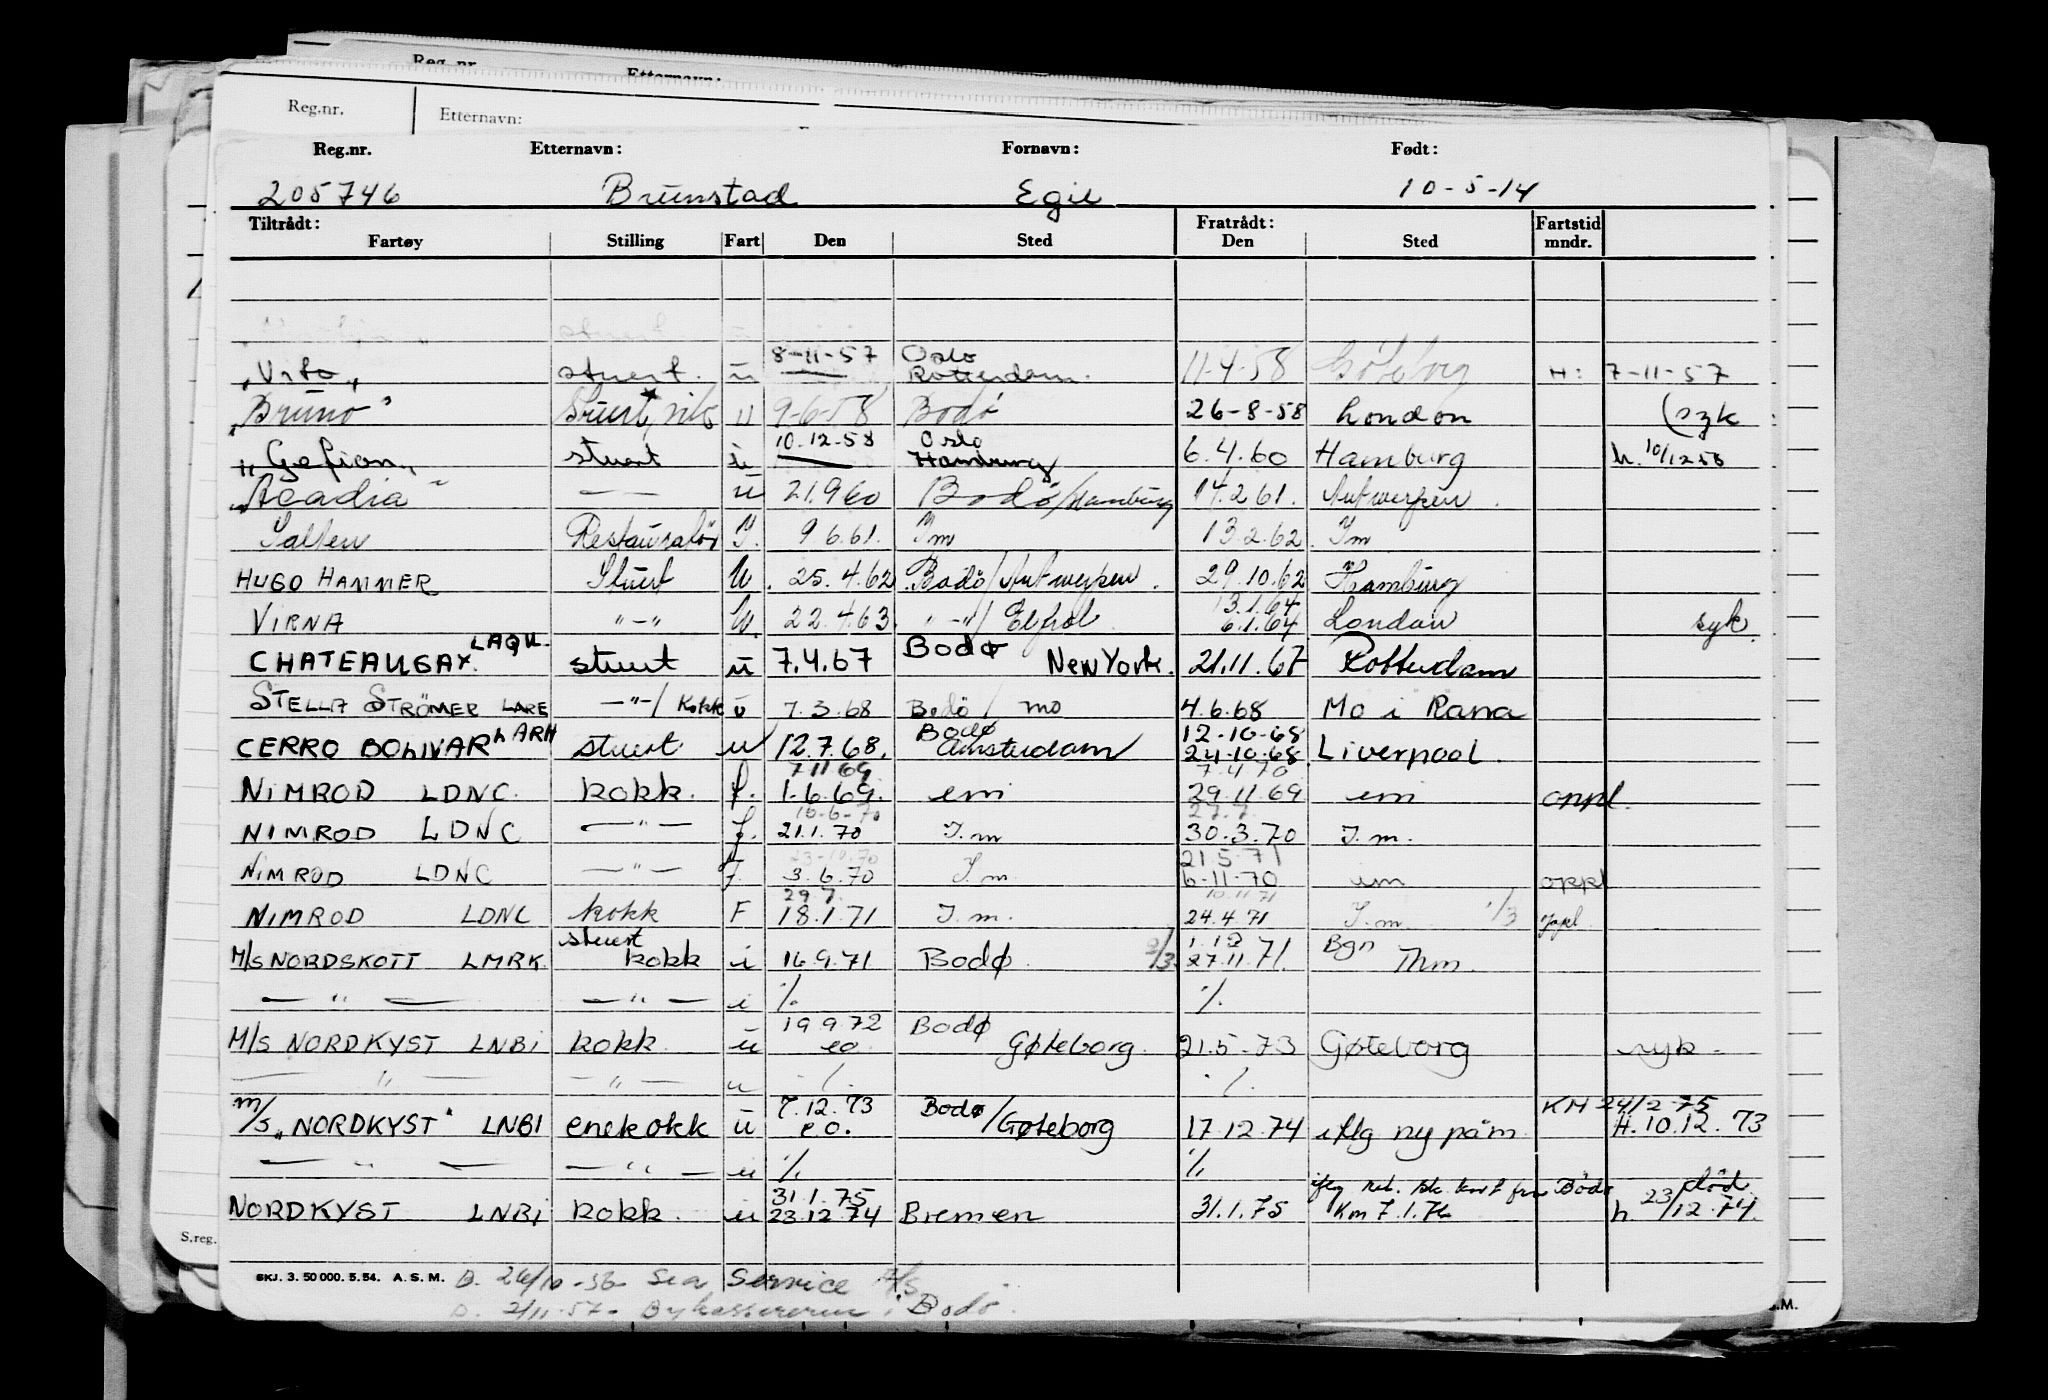 Reg.nr. Etternavn:
Reg.nr. Etternavn:
Reg.nr. Etternavn: Fornavn: Født:
205746 Brunstad Egil 10-5-14
Tiltrådt: Fratrådt: Fartstid
Fartøy Stilling Fart Den Sted Den Sted mndr.
8-11-57 Oslo
"Vito" stuert. u Rotterdam. 11-4-58 Göteborg H: 7-11-57
"Bruno" Stuert, u 9-6-58 Bodö 26-8-58 London (syk
10.12-58 Oslo
"Gefion" stuert u Hamburg 6.4.60 Hamburg h. 10/12 58
"Acadia" — — u 21.9 60 Bodö/Hamburg 14.2 61. Antwerpen.
Salten Restauratör I. 9 6.61. Im 13.2.62 Im
HUGO HAMMER Stuert U. 25.4.62 Bodö/Antwerpen. 29.10.62 Hamburg
13.1.64
VIRNA "-" U. 22.4.63. "-"/ 6.1.64 London syk.
LAQU. Bodø
CHATEAUGAY. stuert u 7.4.67 New York. 21.11.67 Rotterdam
STELLA STRÖMER LARE —"—/Kokk u 7.3.68 Bodö / mo 4.6.68 Mo i Rana
LARH Bodø 12-10-68
CERRO BOLIVAR stuert u 12.7.68. Amsterdam 24-10-68 Liverpool.
7.11 69 7.4.70
NIMROD LDNC. kokk. f. 1.6.69. em 29.11.69 em oppl.
10-6-70 27.7.
NIMROD LDNC —"— f. 21.1.70 I.m 30.3.70 I.m.
23-10.70 21.5.71
NIMROD LDNC —"— f. 3.6.70 I.m. 6-11-70 im oppl
29.7. 10.11.71
NIMROD LDNC kokk F 18.1.71 I.m. 24.4.71 I.m. 1/3
stuert 1.12 Bgn
M/S NORDSKOTT LMRK kokk i 16.9.71 Bodø 2/3 27.11.71. Thm.
— " — — " — i ·/. ·/.
19 9.72 Bodø
M/S NORDKYST LNBI kokk. u eo. Gøteborg. 21.5.73 Gøteborg syk.
— " — — " — u ·/. ·/.
7.12.73 Bodø KM 24/2 75
M/S "NORDKYST" LNBI enekokk u e.o. /Gøteborg 17.12.74 iflg ny påm. H.10.12.73
— " — — " — u ·/. ·/.
31.1.75 iflg kort fra Bodø død.
NORDKYST LNBI kokk. u 23.12.74 Bremen 31.1.75 KM 7.1.76 h. 23/12.74.
S.reg.
SKJ. 3. 50 000. 5. 54. A. S. M. D. 26/10-56 Sea Service A/S
D. 2/11-57. Bykassereren i Bodö.
.M.